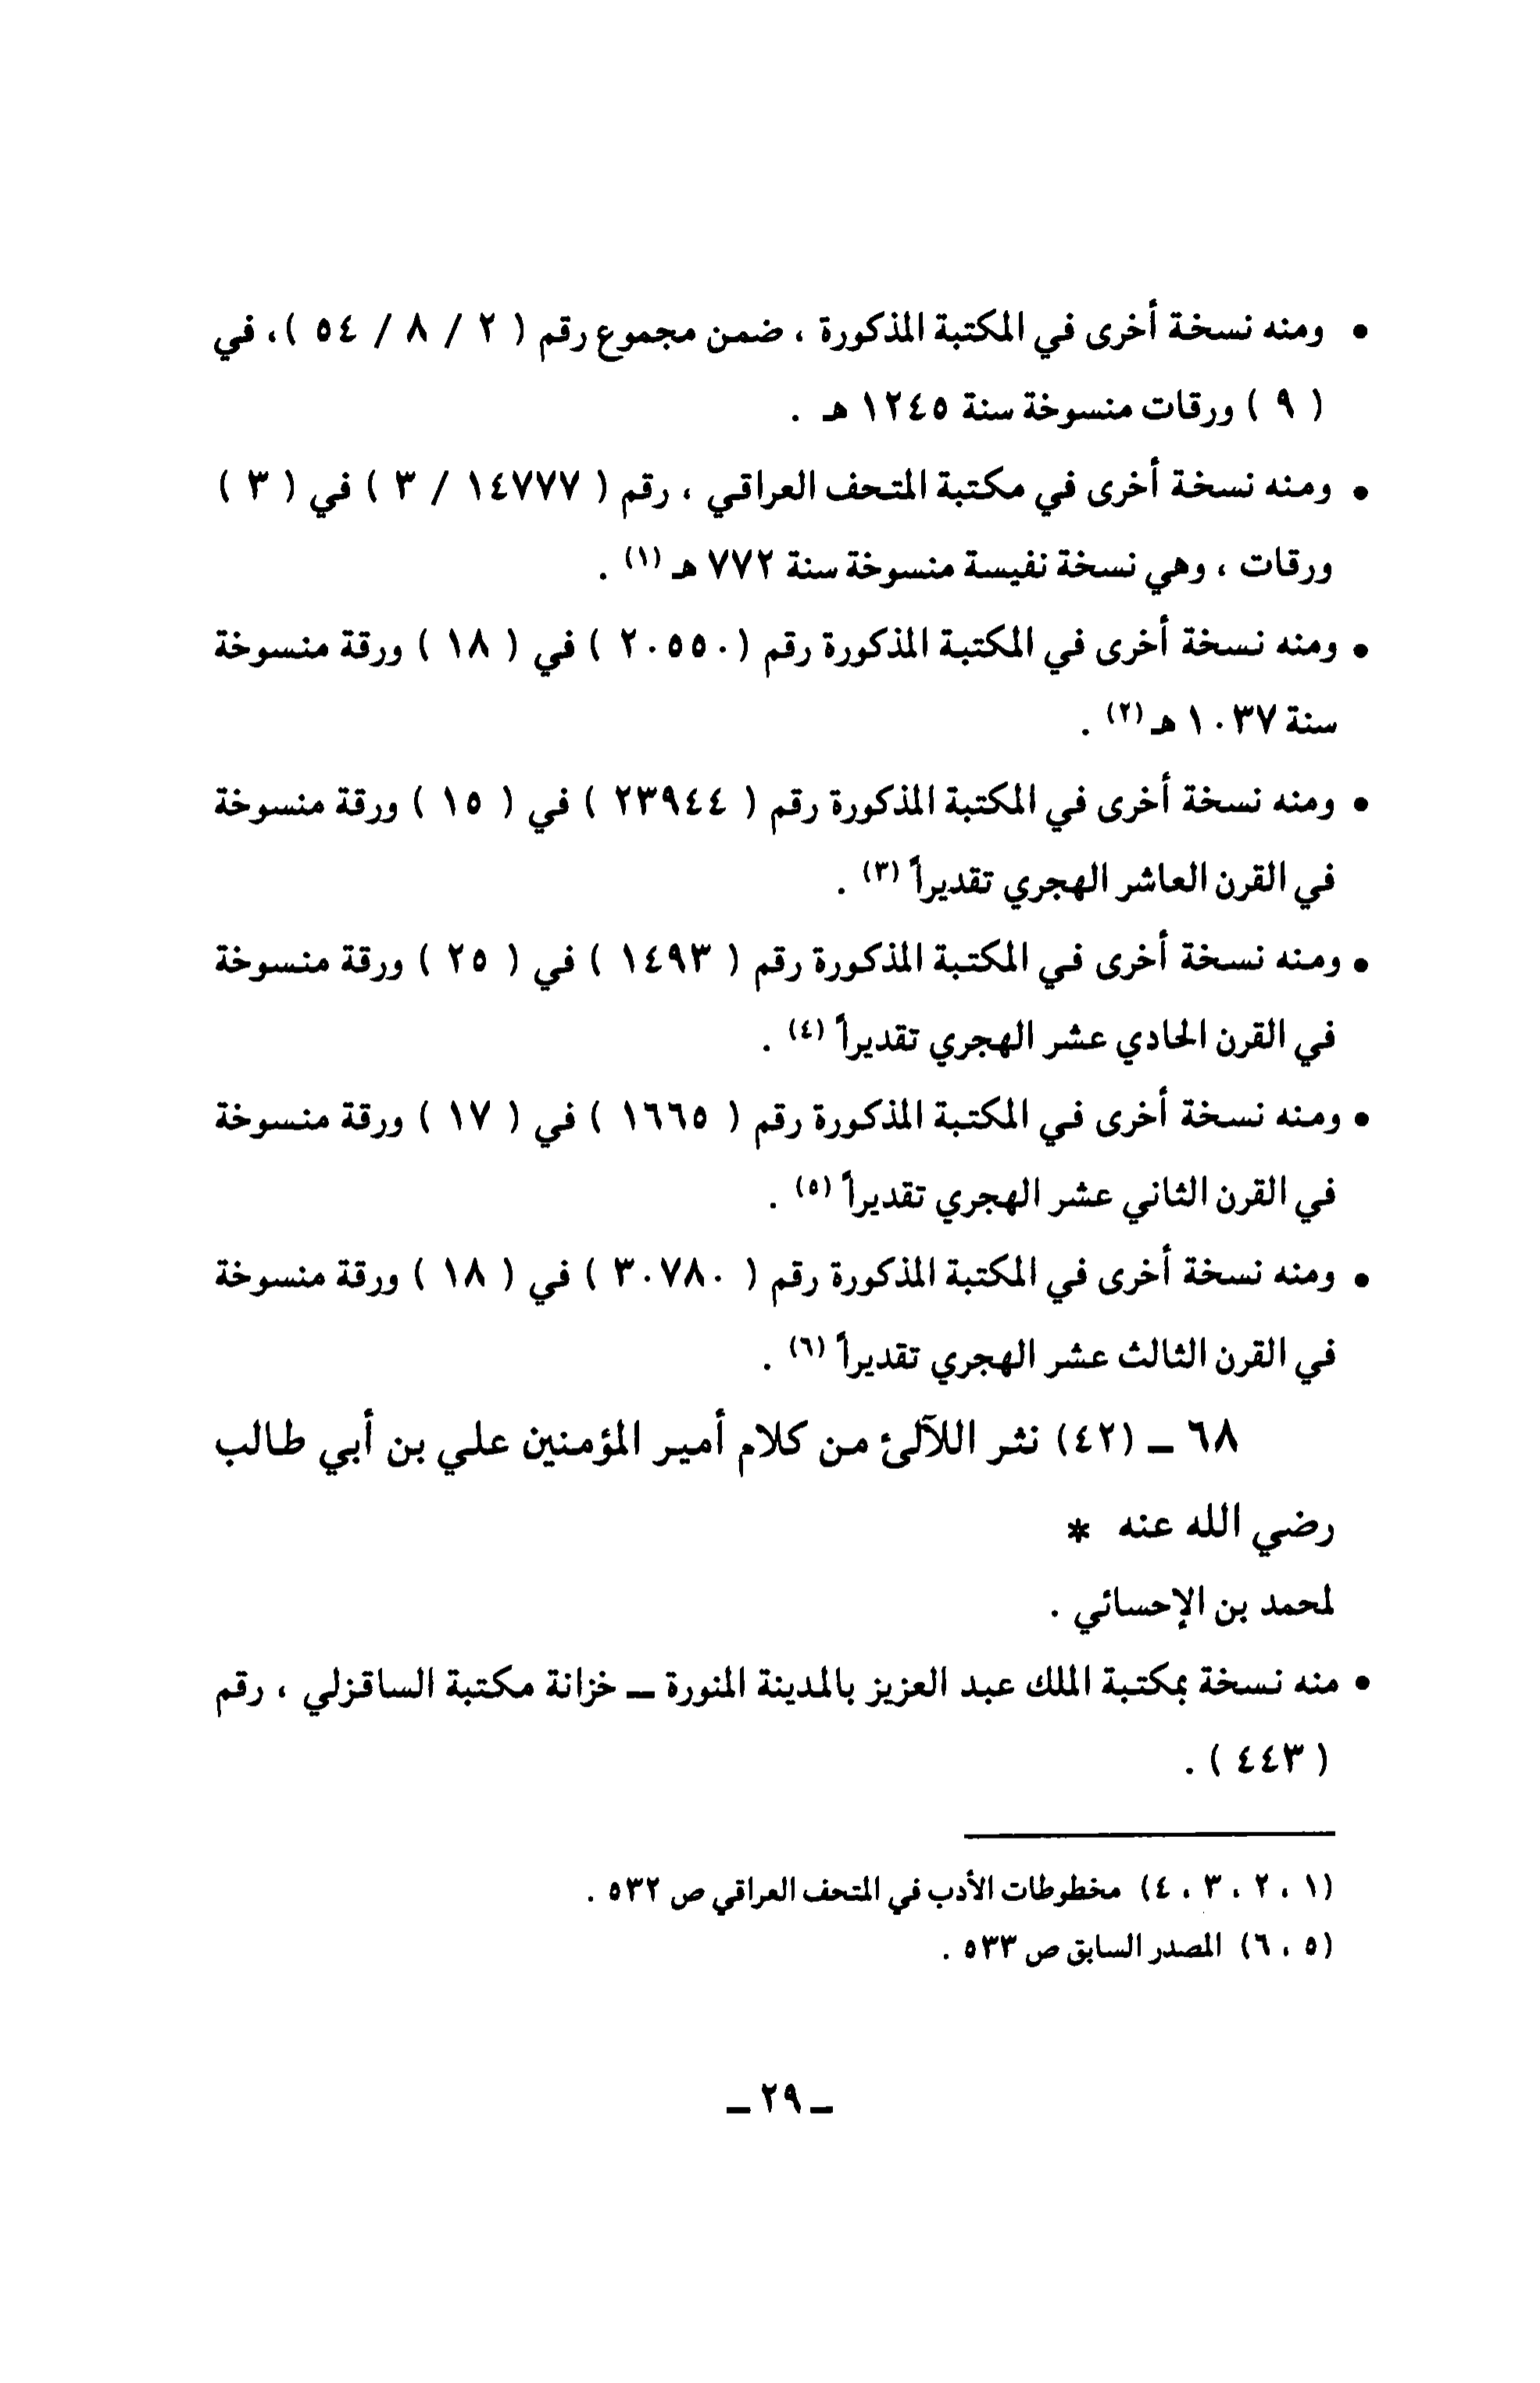 • ومنه نسخة أخرى في المكتبة المذكورة ، ضمن مجموع رقم ( ٢ / ٨ / ٥٤ )، في
( ٩ ) ورقات منسوخة سنة ١٢٤٥ هـ .
• ومنه نسخة أخرى في مكتبة المتحف العراقي ، رقم ( ١٤٧٧٧ / ٣ ) في ( ٣ )
ورقات ، وهي نسخة نفيسة منسوخة سنة ٧٧٢ هـ (١) .
• ومنه نسخة أخرى في المكتبة المذكورة رقم (٢٠٥٥٠ ) في ( ١٨ ) ورقة منسوخة
سنة ١٠٣٧ هـ (٢) .
• ومنه نسخة أخرى في المكتبة المذكورة رقم ( ٢٣٩٤٤ ) في ( ١٥ ) ورقة منسوخة
في القرن العاشر الهجري تقديراً (٣) .
• ومنه نسخة أخرى في المكتبة المذكورة رقم ( ١٤٩٣ ) في ( ٢٥ ) ورقة منسوخة
في القرن الحادي عشر الهجري تقديراً (٤) .
• ومنه نسخة أخرى في المكتبة المذكورة رقم ( ١٦٦٥ ) في ( ١٧ ) ورقة منسوخة
في القرن الثاني عشر الهجري تقديراً (٥) .
• ومنه نسخة أخرى في المكتبة المذكورة رقم ( ٣٠٧٨٠ ) في ( ١٨ ) ورقة منسوخة
في القرن الثالث عشر الهجري تقديراً (٦) .
٦٨ ـ (٤٢) نثر اللآلئ من كلام أمير المؤمنين علي بن أبي طالب
رضي الله عنه *
لمحمد بن الإحسائي .
• منه نسخة بمكتبة الملك عبد العزيز بالمدينة المنورة ـ خزانة مكتبة الساقزلي ، رقم
( ٤٤٣ ) .
(١ ، ٢ ، ٣ ، ٤) مخطوطات الأدب في المتحف العراقي ص ٥٣٢ .
(٥ ، ٦) المصدر السابق ص ٥٣٣ .
ـ ٢٩ ـ